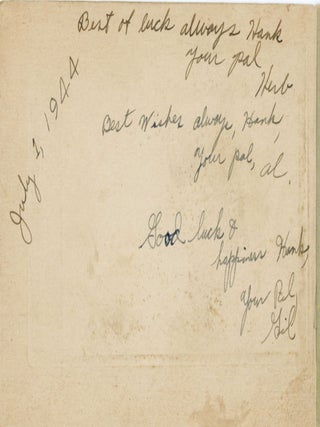 Best of luck always Hank
Your pal,
Herb
July 3, 1944
Best Wishes always, Hank,
Your pal, Al.
Good luck &
happiness Hank,
Your Pal,
Gil